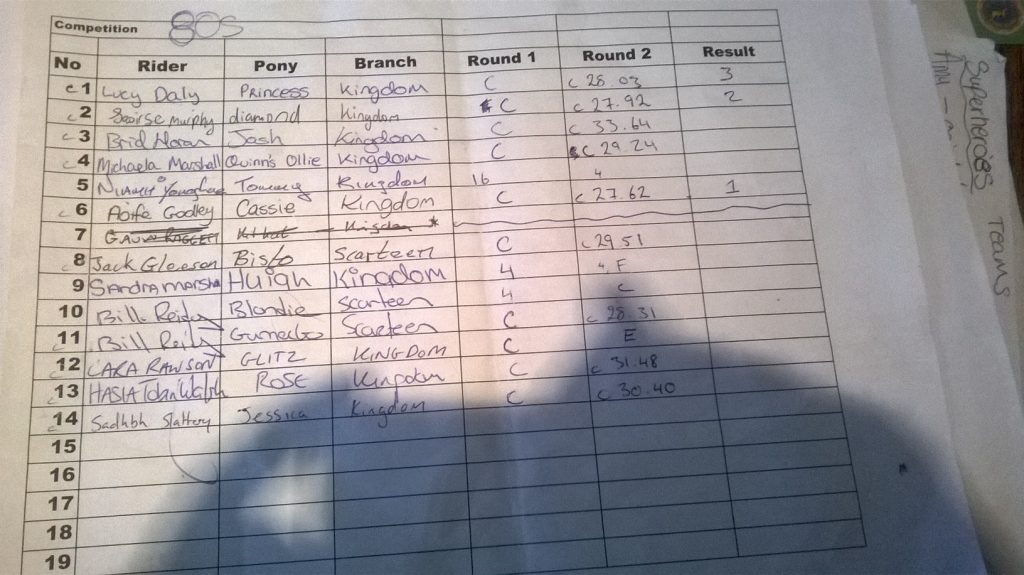 Competition 80s
No Rider Pony Branch Round 1 Round 2 Result
c 1 Lucy Daly Princess Kingdom C c 28.03 3
c 2 Saoirse Murphy diamond Kingdom C c 27.92 2
c 3 Brid Horan Josh Kingdom C c 33.64
c 4 Michaela Marshall Quinn's Ollie Kingdom C c 29.24
5 Niamh Tommy Kingdom 16 4
c 6 Aoife Godley Cassie Kingdom C c 27.62 1
7
c 8 Jack Gleeson Bisto Scarteen C c 29.51
9 Sandra Marsha Huigh Kingdom 4 4.F
10 Bill Blondie Scarteen 4 C
11 Bill Scarteen C c 28.31
12 CARA RAWSON GLITZ KINGDOM C E
13 HASIA ROSE C c 31.48
c 14 Sadhbh Slattery Jessica Kingdom C c 30.40
15
16
17
18
19
Superheroes
Teams